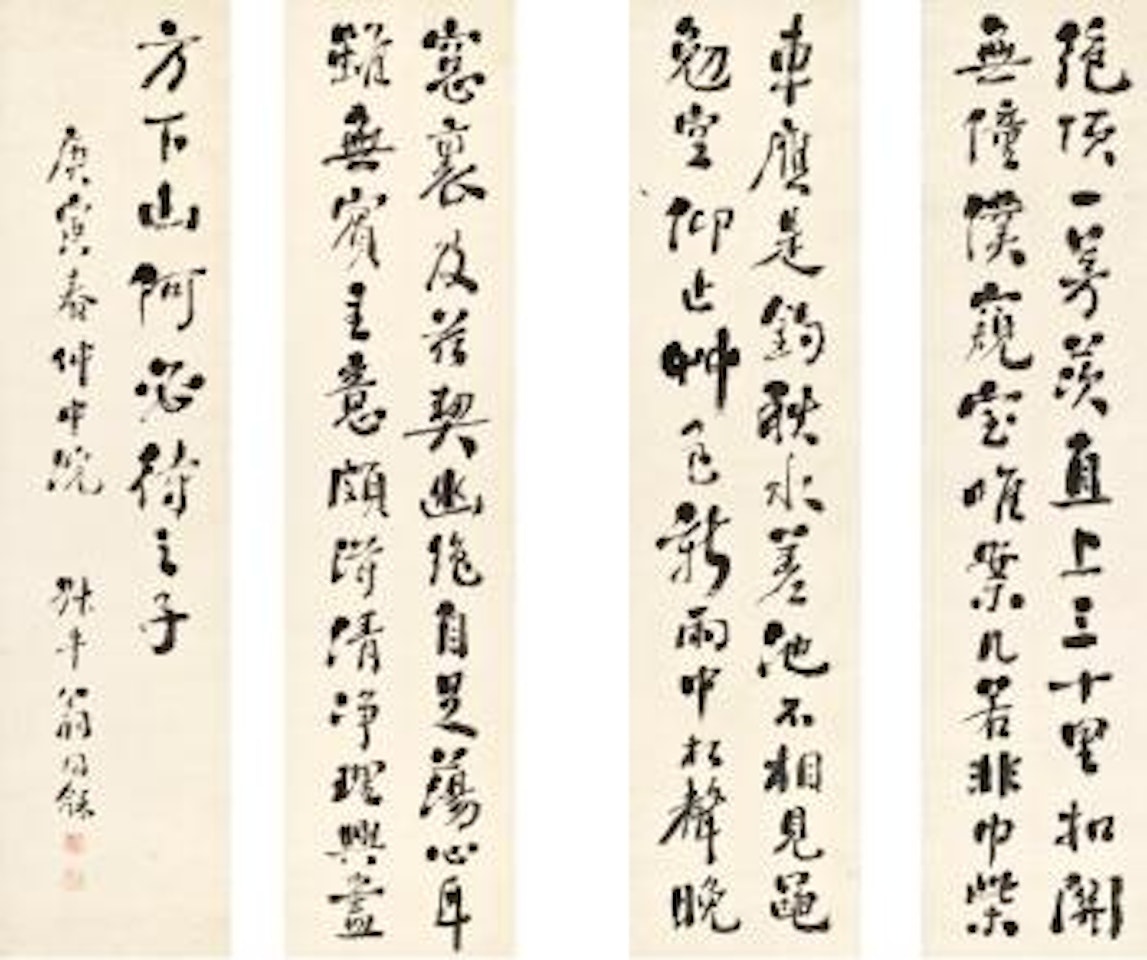 絕頂一茅茨直上三十里扣關
無僮僕窺室唯案几若非巾柴
車應是釣秋水差池不相見黽
勉空仰止艸色新雨中松聲晚
窓裏及茲契幽絕自足蕩心耳
雖無賓主意頗得清淨理興盡
方下山何必待之子
庚寅春仲中浣 叔平翁同龢